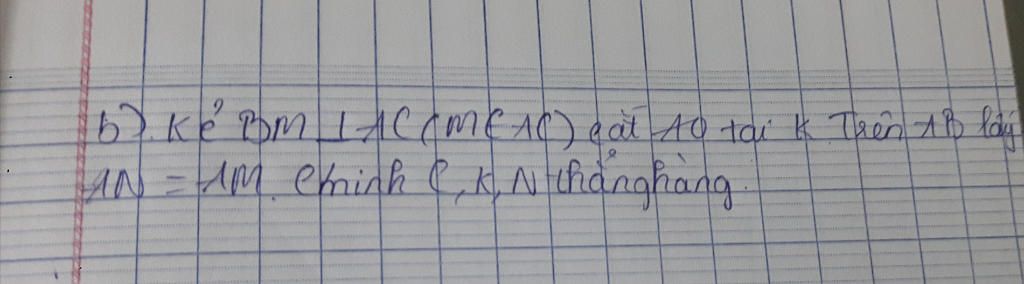 b). Kẻ BM ⊥ AC (M ∈ AC) cắt AD tại K. Trên AB lấy
AN = AM. Cminh C, K, N thẳng hàng.